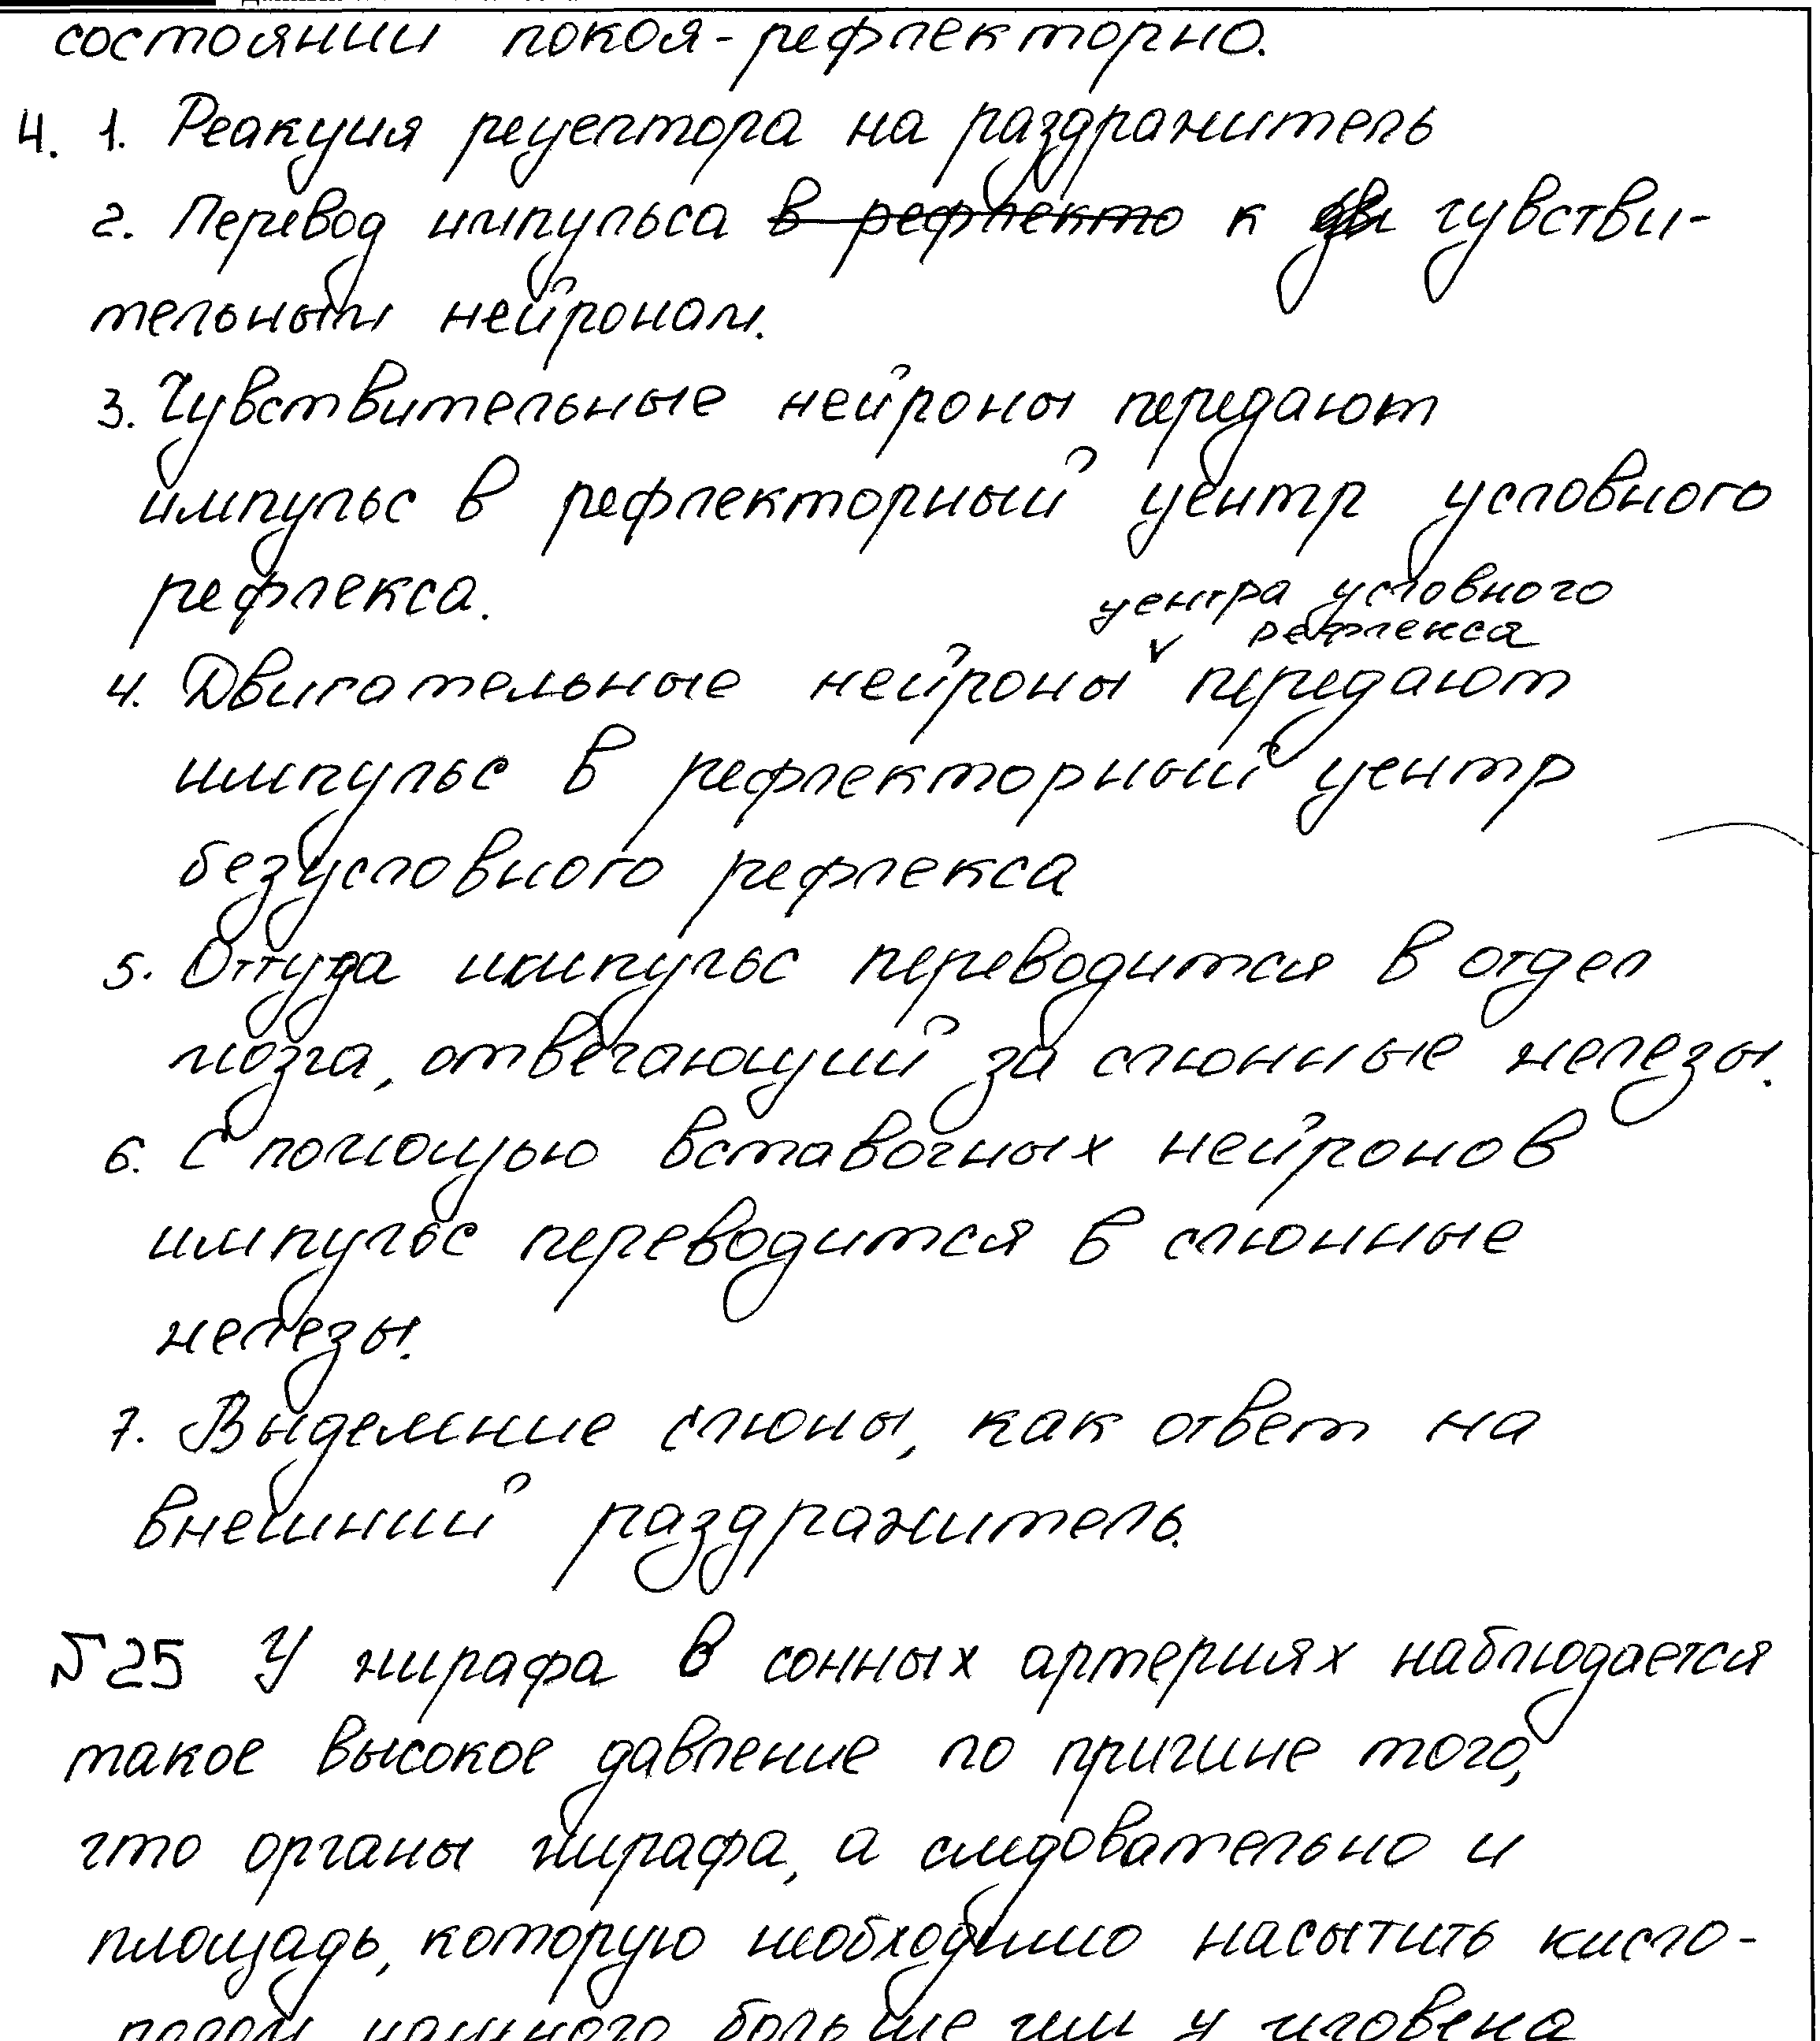 состоянии покоя - рефлекторно.
4. 1. Реакция рецептора на раздражитель
2. Перевод импульса в рефлекто к чувстви-
тельным нейронам.
3. Чувствительные нейроны передают
импульс в рефлекторный центр условного
рефлекса.
центра условного
рефлекса
4. Двигательные нейроны передают
импульс в рефлекторный центр
безусловного рефлекса
5. Оттуда импульс переводится в отдел
мозга, отвечающий за слюнные железы.
6. С помощью вставочных нейронов
импульс переводится в слюнные
железы.
7. Выделение слюны, как ответ на
внешний раздражитель.
№25 У жирафа в сонных артериях наблюдается
такое высокое давление по причине того,
что органы жирафа, а следовательно и
площадь, которую необходимо насытить кисло-
родом намного больше чем у человека